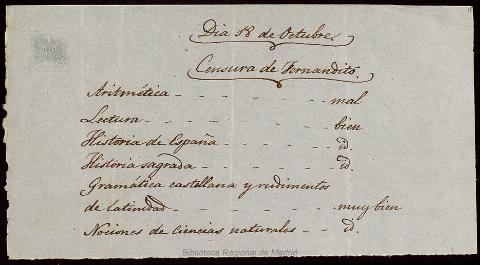 Dia 18 de Octubre.
Censura de Fernandito.
Aritmética - - - - - - mal
Lectura - - - - - - bien
Historia de España - - - - - id.
Historia sagrada - - - - - id.
Gramática castellana y rudimentos
de latinidad - - - - - muy bien
Nociones de ciencias naturales - - id.
Biblioteca Regional de Madrid